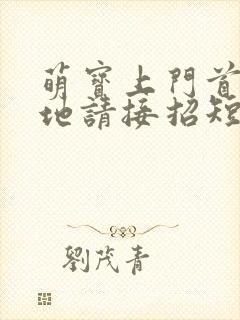 萌寶上門首
地請接招短
劉茂青